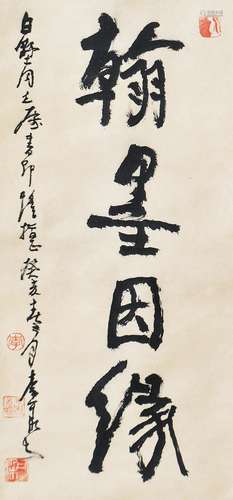 翰墨因缘
白野同志属书即请指正癸亥春月李可染